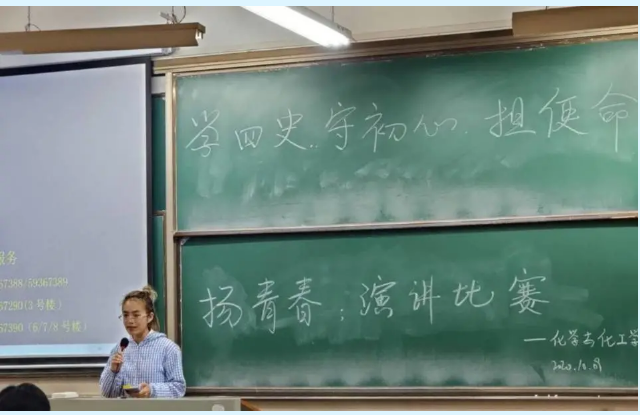 学四史..守初心.担使命
扬青春;演讲比赛
—化学与化工学
2020.10.09
服务
67388/59367389
67290(1号楼)
67390(6/7/8号楼)